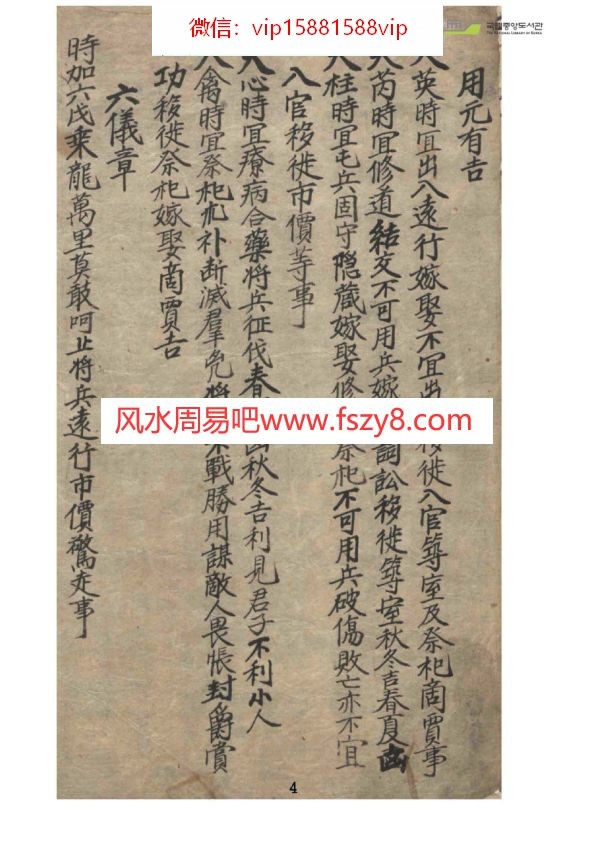 微信：vip15881588vip
국립중앙도서관
THE NATIONAL LIBRARY OF KOREA
用元有吉
英時宜出入遠行嫁娶不宜出移徙入官築室及祭祀商賈事
芮時宜修道結交不可用兵嫁訟移徙築室秋冬吉春夏凶
柱時宜屯兵固守隐藏嫁娶修祭祀不可用兵破傷敗亡亦不宜
入官移徙市價等事
心時宜療病合藥將兵征伐春秋冬吉利見君子不利小人
禽時宜祭祀补断滅羣兇將戰勝用謀敵人畏帳封爵賞
功移徙祭祀嫁娶商賈吉
六儀章
時加六戊乘龍萬里莫敢呵止將兵遠行市價驚走事
风水周易吧www.fszy8.com
4